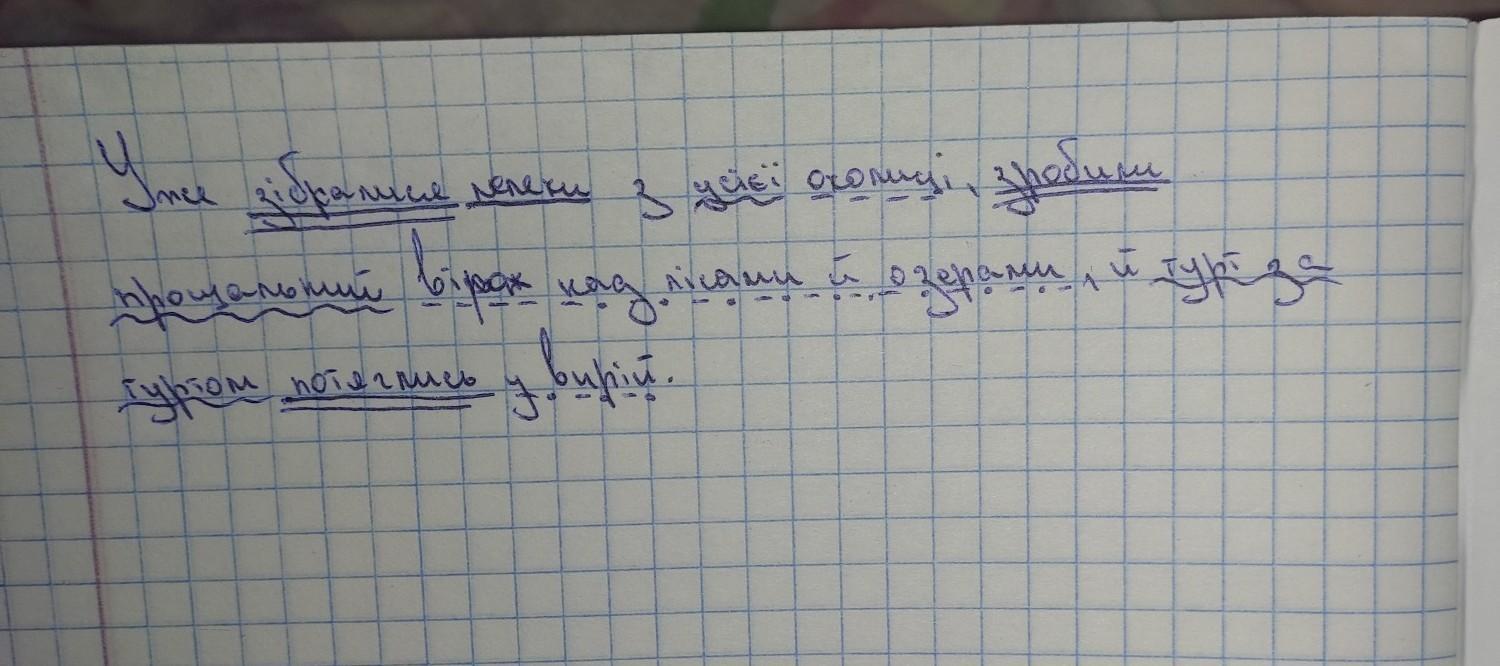 Уже зібралися лелеки з усієї околиці, зробили
прощальний віраж над лісами й озерами, й гурт за
гуртом потяглись у вирій.